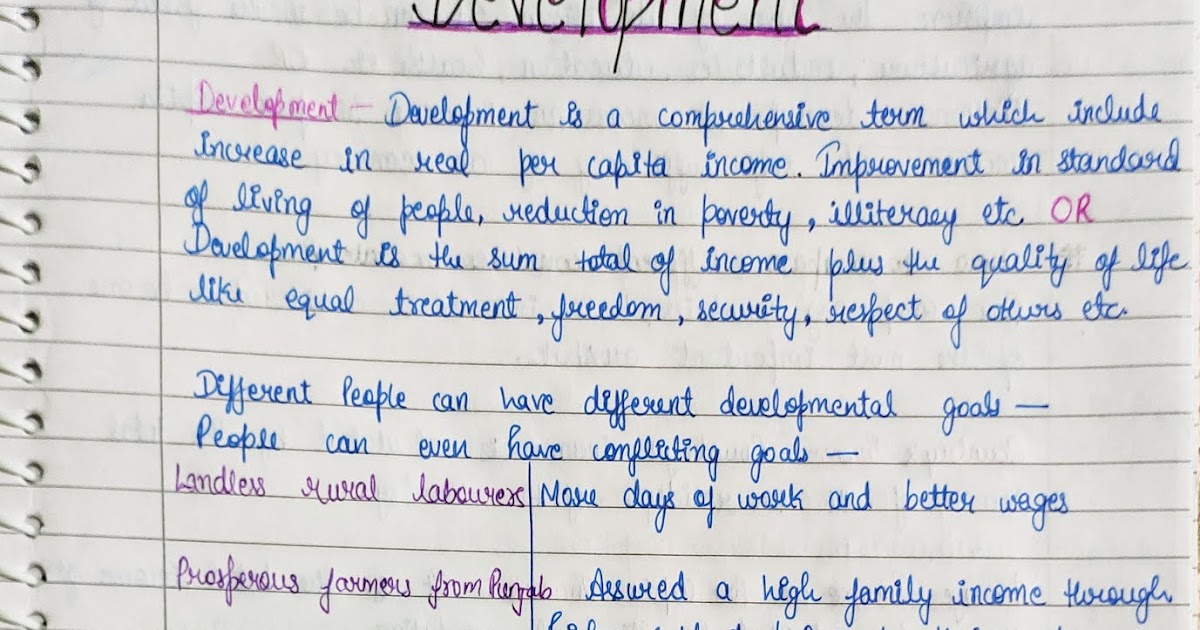 Development
Development - Development is a comprehensive term which include
Increase in real per capita income. Improvement in standard
of living of people, reduction in poverty, illiteracy etc OR
Development is the sum total of income plus the quality of life
like equal treatment, freedom, security, respect of others etc.
Different People can have different developmental goals —
People can even have conflicting goals —
Landless rural labourers More days of work and better wages
Prosperous farmers from Punjab Assured a high family income through